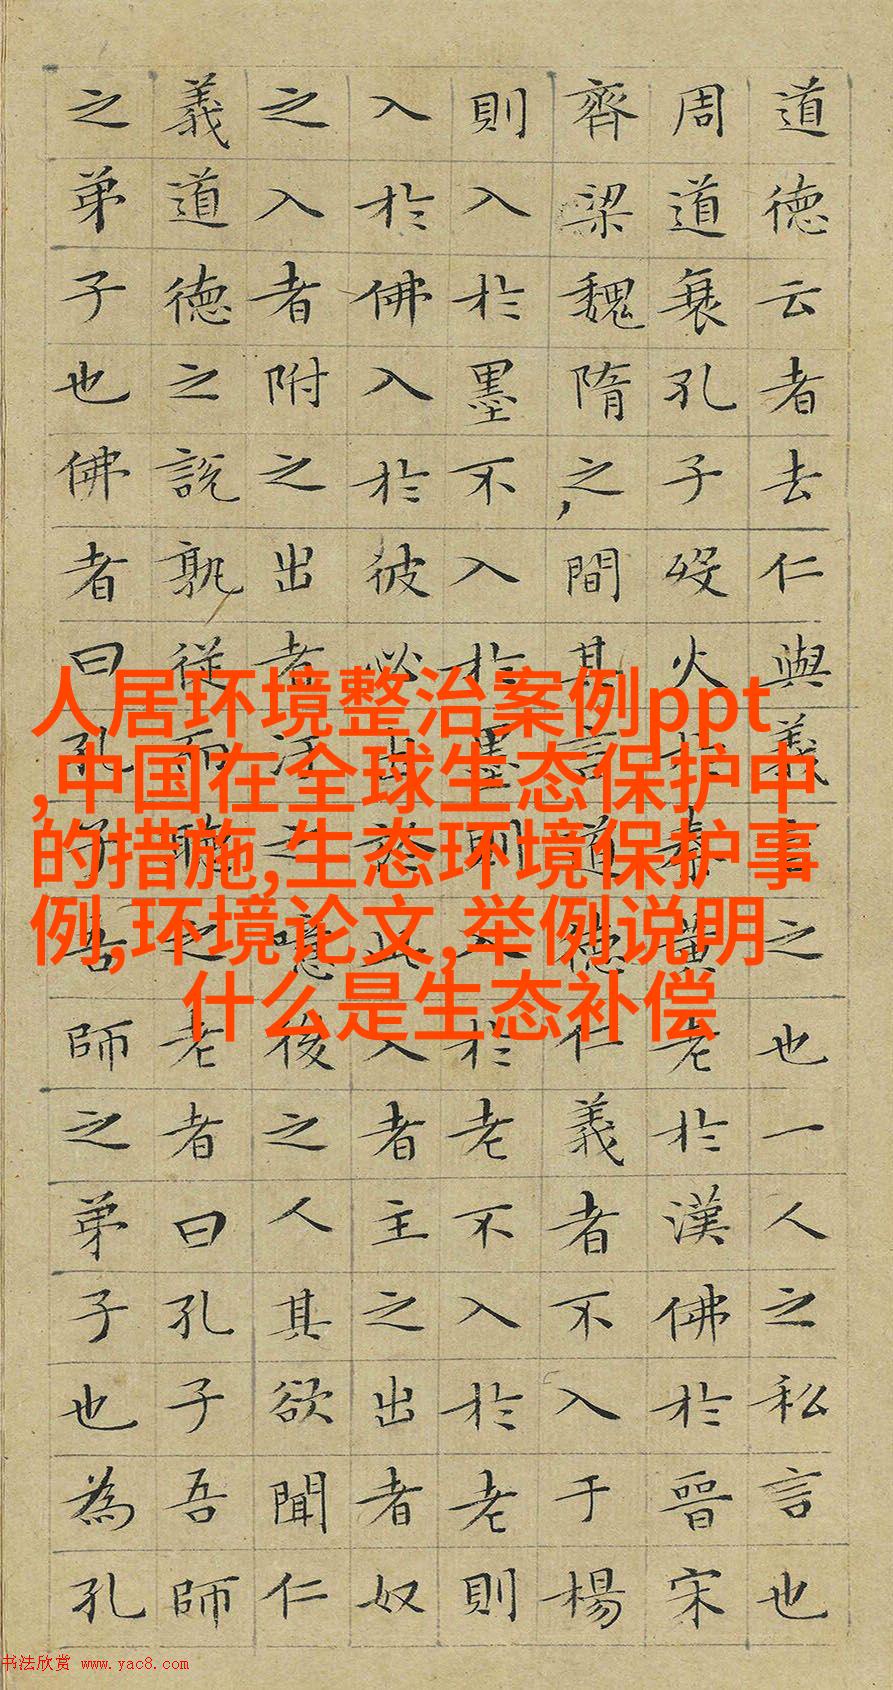 道德云者去仁與義言之也一人之私言也
周道衰孔子歿火於秦黃老於漢佛於晉宋
齊梁魏隋之間其言道德仁義者不入于楊
則入於墨不入於墨則入於老不入於老則
入於佛入於彼必出於此入者主之出者奴
之入者附之出者汙之噫後之人其欲聞仁
義道德之說孰從而聽之老者曰孔子吾師
之弟子也佛者曰孔子吾師之弟子也為孔
人居环境整治案例ppt
,中国在全球生态保护中
的措施,生态环境保护事
例,环境论文,举例说明
什么是生态补偿
书法欣赏 www.yac8.com